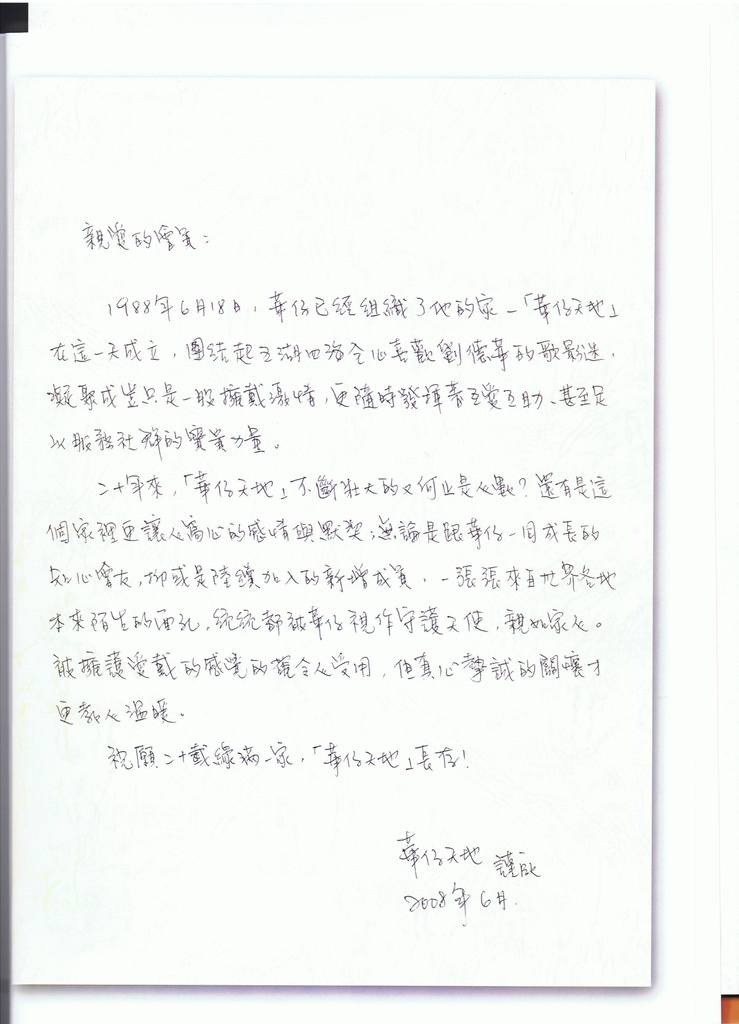 親愛的會員：
1988年6月18日，華仔已經組織了他的家－「華仔天地」
在這一天成立，團結起五湖四海全心喜歡劉德華的歌影迷，
凝聚成豈只是一股擁戴激情，更隨時發揮著互愛互助、甚至足
以服務社群的寶貴力量。
二十年來，「華仔天地」不斷壯大的又何止是人數？還有是這
個家裡更讓人窩心的感情與默契；無論是跟華仔一同成長的
知心會友，抑或是陸續加入的新增成員，一張張來自世界各地
本來陌生的面孔，統統都被華仔視作守護天使，親如家人。
被擁護愛戴的感覺的確令人受用，但真心摯誠的關懷才
更教人溫暖。
祝願二十載緣滿一家，「華仔天地」長存！
華仔天地 謹啟
2008年6月.